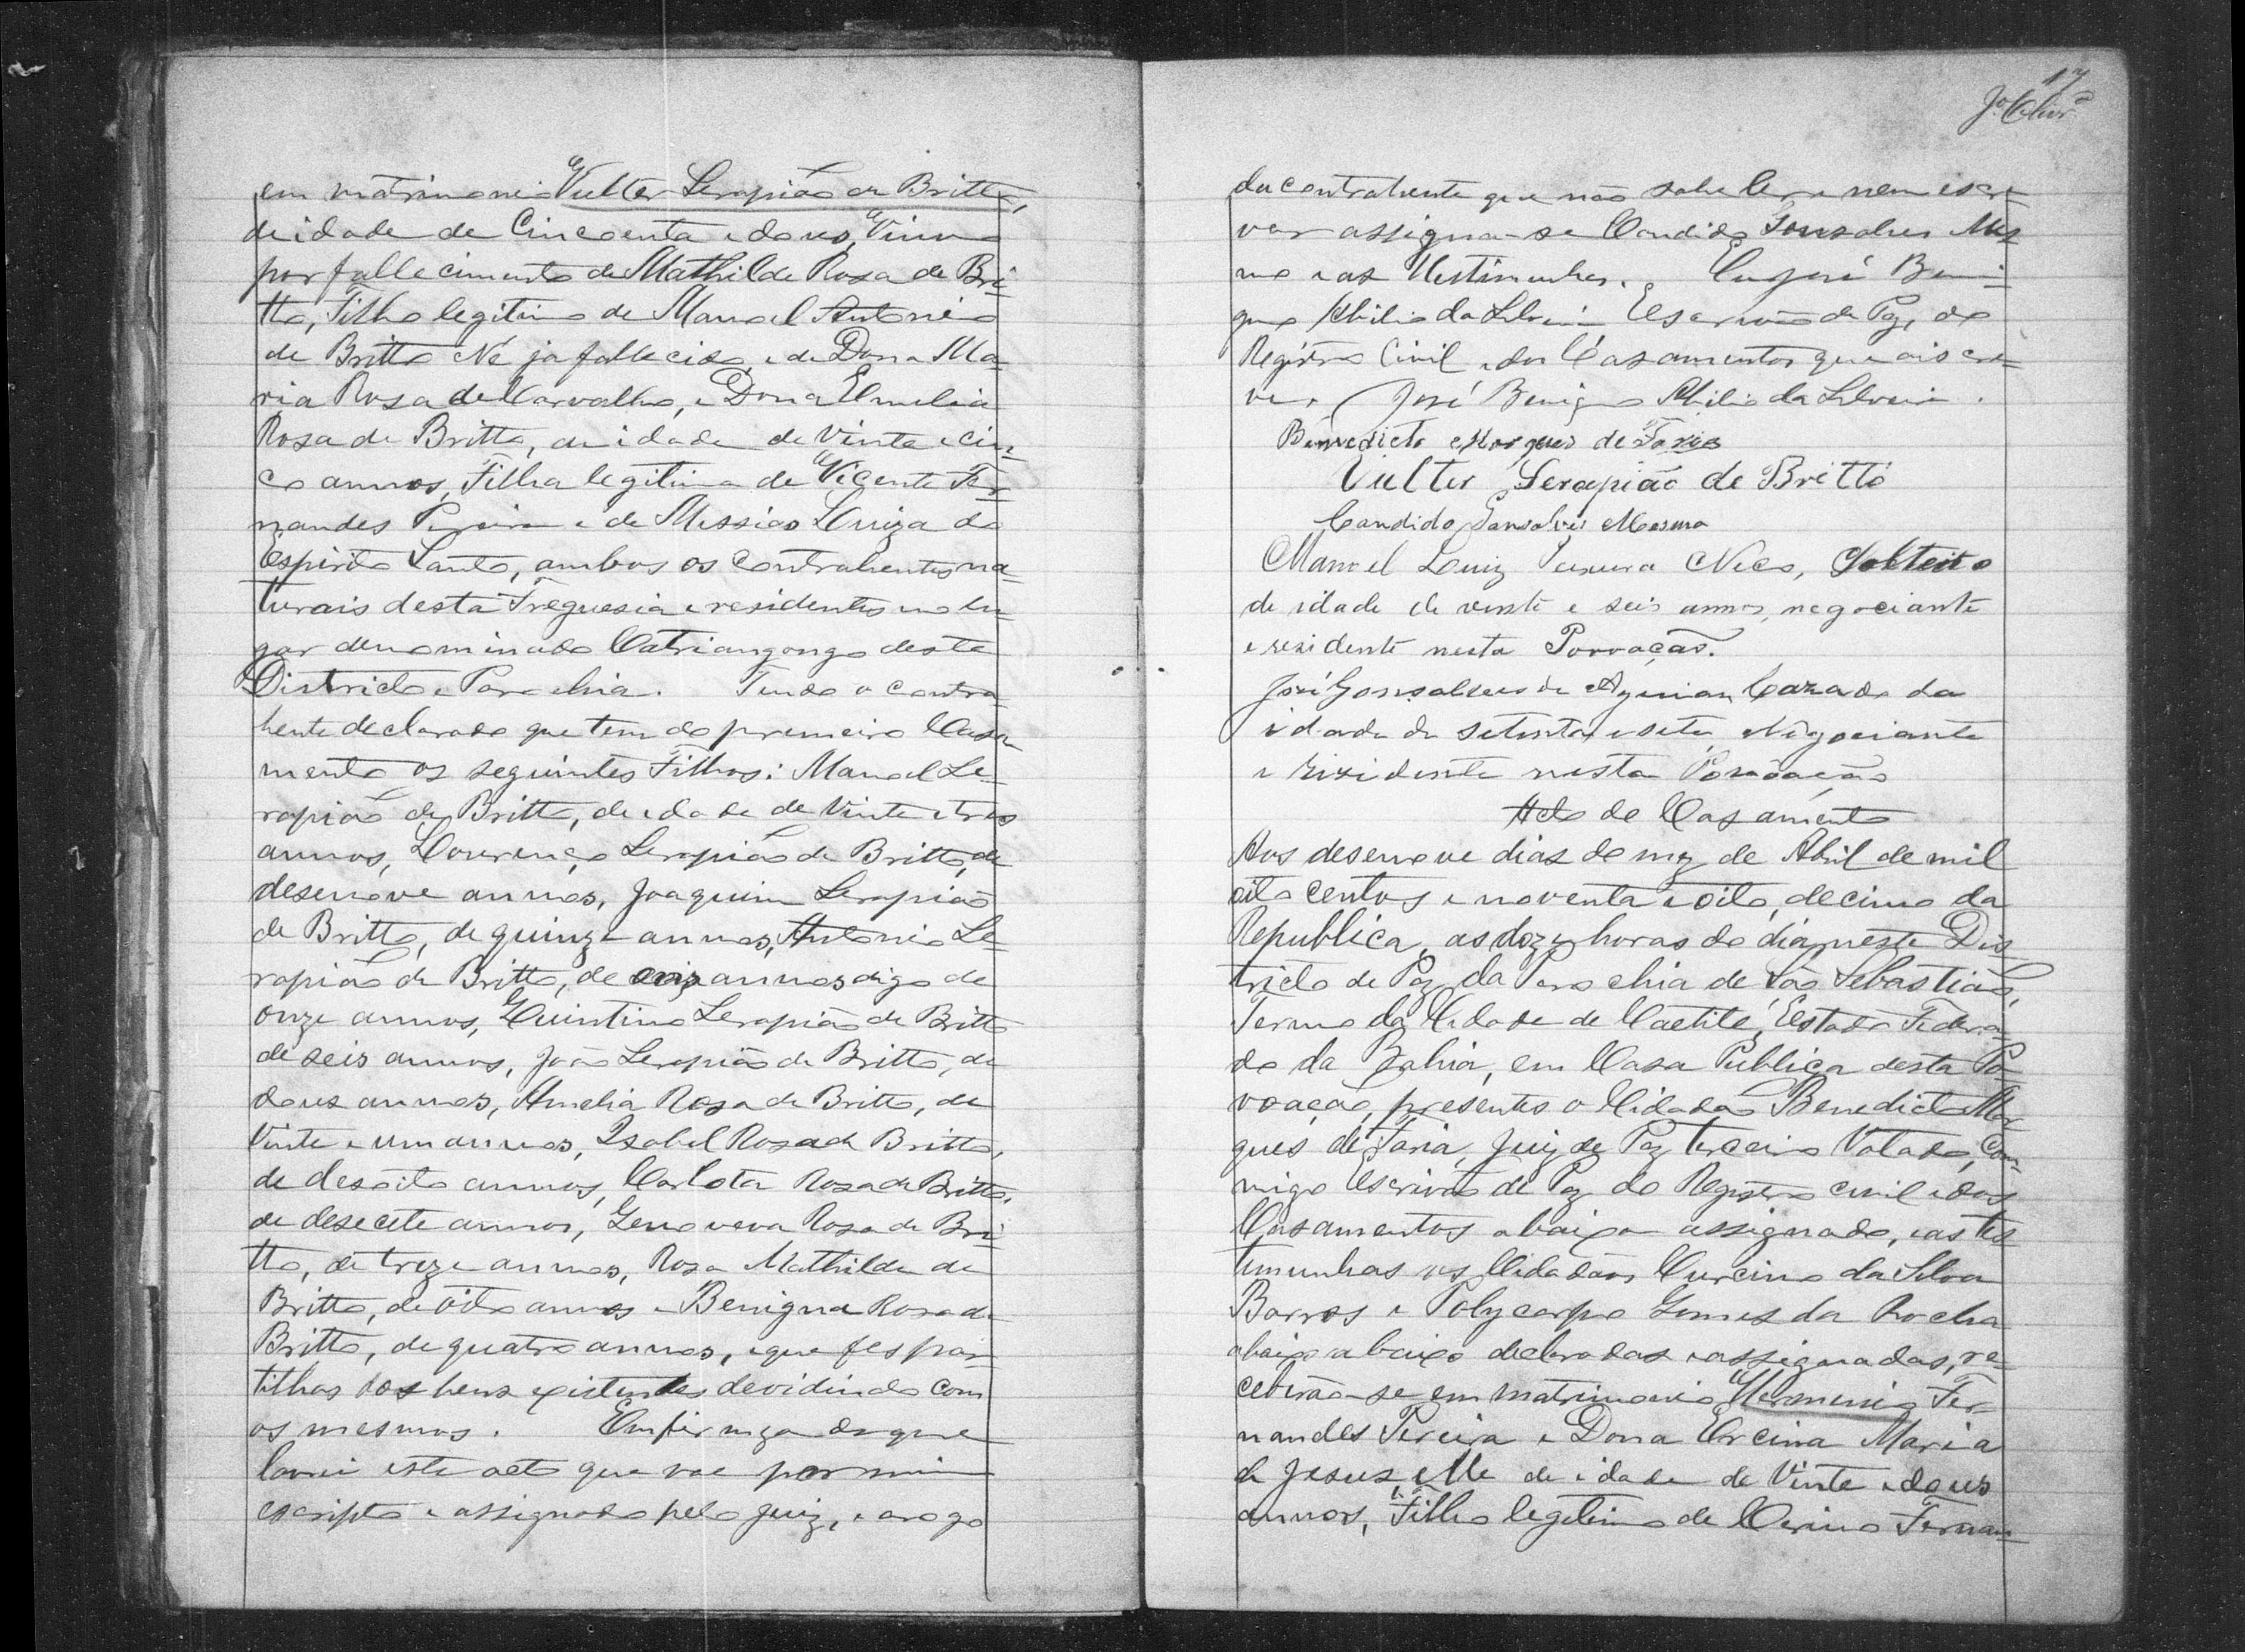 em matrimonio Vulter Serapião de Britto,
de idade de Cincoenta e dous, Viuvo
por fallecimento de Mathilde Rosa de Bri-
tto, Filho legitimo de Manoel Antonio
de Britto Né ja fallecido, e de Dona Ma-
ria Rosa de Carvalho, e Dona Emelia
Rosa de Britto, de idade de Vinte e cin-
co annos, Filha legitima de Vicente Fer-
nandes Pereira e de Messias Luiza do
Espirito Santo, ambos os contrahentes na-
turais desta Freguesia e residentes no lu-
gar denominado Catriangongo deste
Districto e Parochia. Tendo o contra-
hente declarado que tem do primeiro Casa-
mento os seguintes Filhos: Manoel Se-
rapião de Britto, de idade de Vinte e tres
annos, Lourenço Serapião de Britto, de
desenove annos, Joaquim Serapião
de Britto, de quinze annos, Antonio Se-
rapião de Britto, de annos digo de
onze annos, Quintino Serapião de Britto
de seis annos, João Serapião de Britto, de
dous annos, Amelia Rosa de Britto, de
Vinte e um annos, Izabel Rosa de Britto,
de desoito annos, Carlota Rosa de Britto,
de desecete annos, Genoveva Rosa de Bri-
tto, de treze annos, Rosa Mathilde de
Britto, de oito annos e Benigna Rosa de
Britto, de quatro annos, e que fes par-
tilhas dos bens existentes devidindo com
os mesmos. Em firmeza do que
lavrei este acto que vae por mim
escripto e assignado pelo Juiz, e arogo
17
da contrahente que não sabe ler e nem escre-
ver assigna-se Candido Gonsalves Mes-
mo e as testimunhas. Eu José Beni-
gno Abilio da Silveira Escrivão de Paz, do
Registro Civil e dos Casamentos que o iscre-
vi. José Benigno Abilio da Silveira.
Benedicto Marques de Faria
Vulter Serapião de Britto
Candido Gansalves Mesmo
Manoel Luiz Neco, Solteiro
de idade de vinte e seis annos, negociante
e residente nesta Povoação.
José Gonsalves de Aguiar, Cazado da
idade de setenta e sete, Nigociante
e rizidente nesta Povoação
Acto de Casamento
Aos desenove dias do mez de Abril de mil
oito centos e noventa e oito, decimo da
Republica, as doze horas do dia, neste Dis-
tricto de Paz da Parochia de São Sebastião,
Termo da Cidade de Caetité, Estado Federa-
do da Bahia, em Casa Publica desta Po-
voação, presentes o Cidadão Benedicto Mar-
ques de Faria, Juiz de Paz terceiro Votado, Com-
migo Escrivão de Paz do Registro civil e dos
Casamentos abaixo assignado, e as tes-
timunhas os Cidadãos Curcino da Silva
Barros e Polycarpo Gomes da Rocha
abaixo abaixo declaradas e assignadas, re-
ceberão-se em matrimonio Hermenio Fer-
nandes Pereira e Dona Orcina Maria
de Jesus, elle de idade de Vinte e dous
annos, Filho legitimo de Fernan-